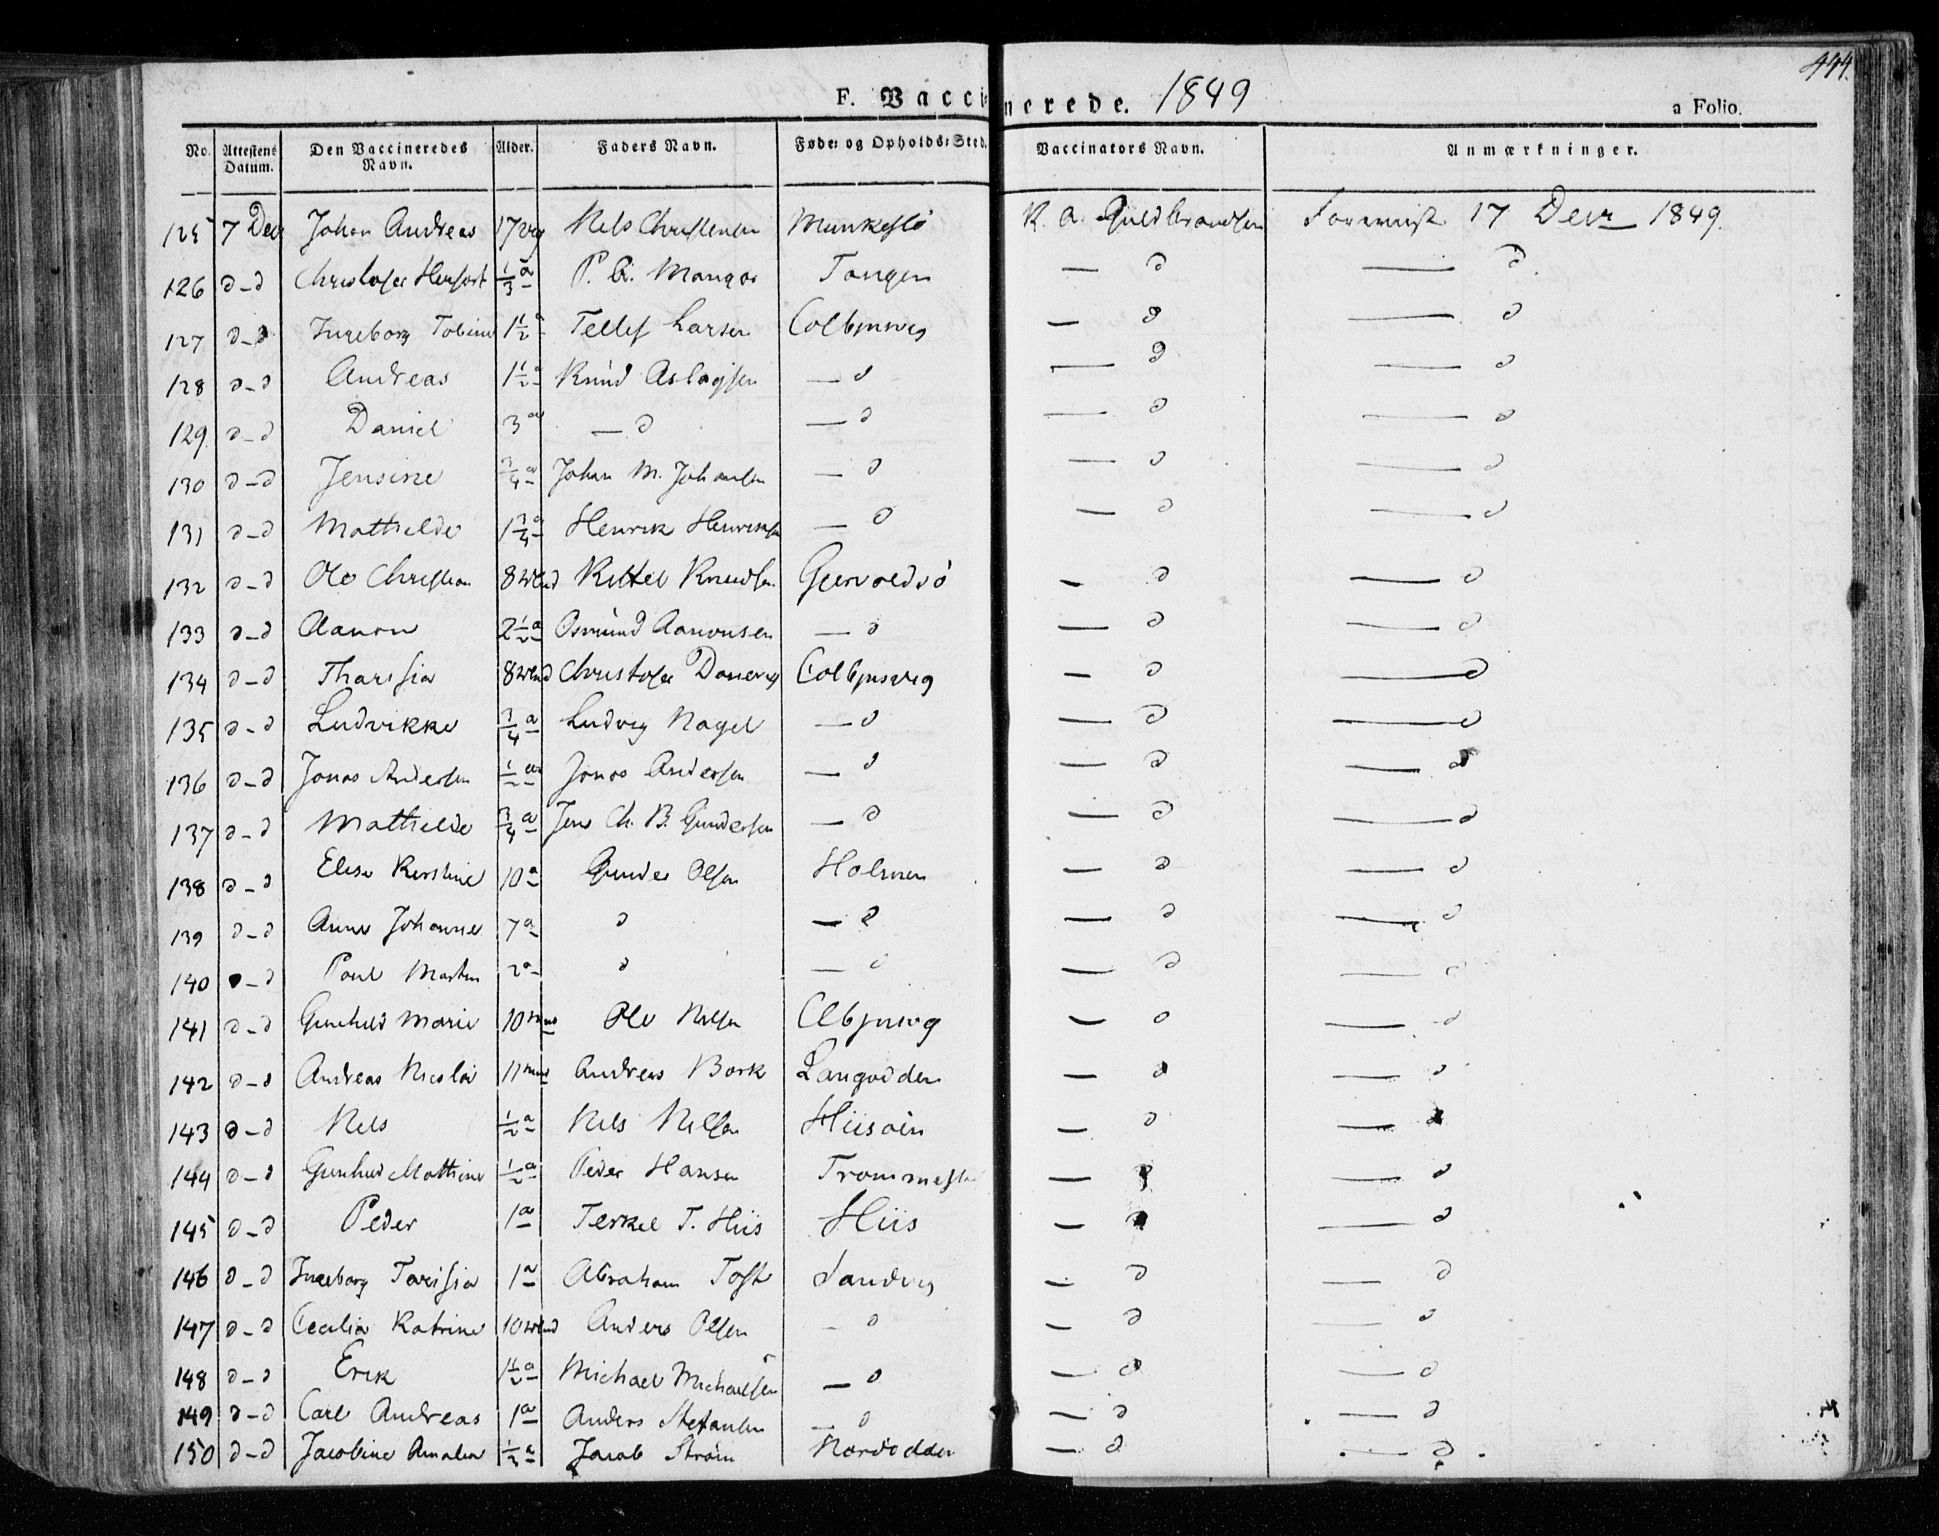 444.
F. Vaccinerede. 1849 a Folio.
No. Attestens Datum. Den Vaccineredes Navn. Alder. Faders Navn. Føde- og Opholds-Sted. Vaccinators Navn. Anmærkninger.
125 7 Dec Johan Andreas 17 Nels Christensen Munkeslo K. A. Guldbrandsen 17 Decr 1849.
126 d - d Christofer Herfort 1/3 a P. Mangor Tangen — d — d.
127 d - d Ingeborg Tobine 1 1/2 a Tellef Larsen Colbjnsvig — d — d
128 d - d Andreas 1 1/2 a Knud Aslagsen — d — d — d
129. d - d Daniel 3 a — d — d — d — d
130 d - d Jensine 3/4 a Johan M. Johansen — d — d — d
131 d - d Mathilde 1 3/4 a Henrik Henriksen — d — d — d
132 d - d Ole Christian 8 Kittel Knudsen Gjervoldsö — d — d
133 d - d Aanon 2 1/2 a Osmund Aanonsen — d — d — d
134 d - d Tharisia 8 Christofer Danevig Colbjnsvig — d — d
135 d - d Ludvikke 3/4 a Ludvig Nagel — d — d — d
136 d - d Jonas Andersen Jonas Andersen — d — d — d
137 d - d Mathilde 3/4 a Jens Ch. B. Gundersen — d — d — d
138 d - d Elise Kirstine 10 a Gunder Olsen Holmen — d — d
139 d - d Anne Johanne 7 a d — d — d — d
140 d - d Poul Martin 2 a d — d — d — d
141 d - d Gunhild Marie 10 Ole Nilsen — d — d
142 d - d Andreas Nicolai 11 Andreas Bork Langodden — d — d
143 d - d Nels 1/2 a Nels Nilsen Hiisöin — d — d
144 d - d Gunhild Mathine 1/2 a Peder Hansen — d — d
145 d - d Peder 1 a Terkel T. Hiis Hiis — d — d
146 d - d Ingeborg Tarisia 1 a Abraham Toft Sandvig — d — d
147 d - d Cecilia Katrine 10 Anders Olsen — d — d — d
148 d - d Erik 1 1/2 a Michael Michaelsen — d — d — d
149 d - d Carl Andreas 1 a Anders Stefansen — d — d — d
150 d - d Jacobine Amalia 1/2 a Jacob Ström Nordodden — d — d